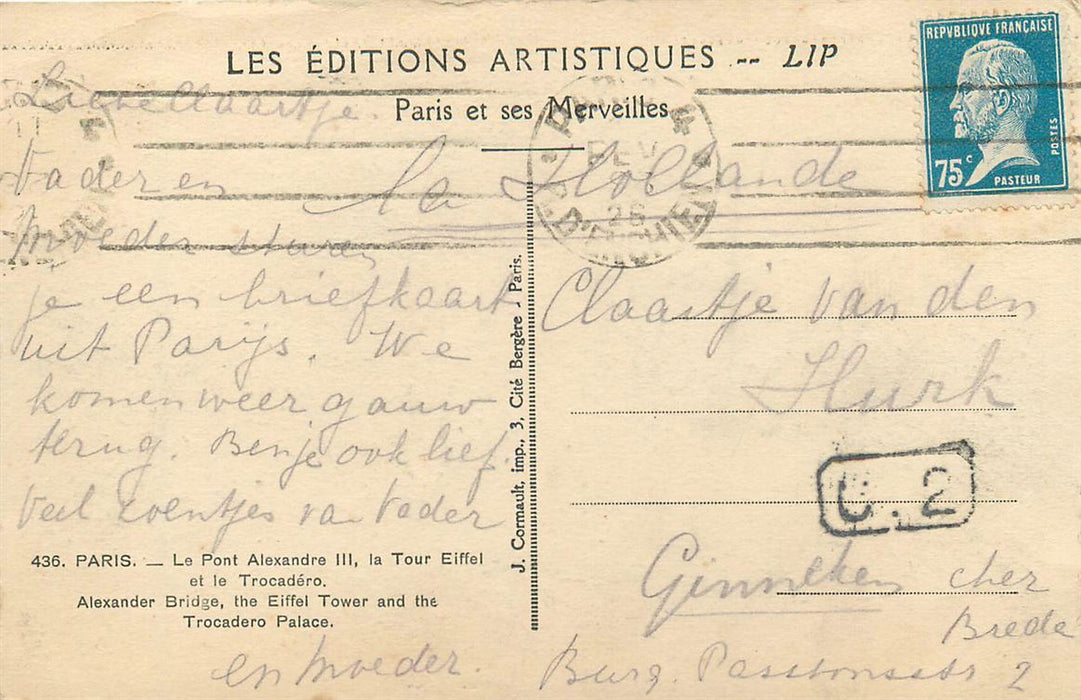 LES ÉDITIONS ARTISTIQUES -- LIP
Paris et ses Merveilles
REPVBLIQVE FRANÇAISE
75c
PASTEUR
POSTES
Lieve Claartje.
Vader en
Moeder sturen
je een briefkaart
uit Parijs. We
komen weer gauw
terug. Ben je ook lief.
Veel zoentjes van Vader
en Moeder.
436. PARIS. — Le Pont Alexandre III, la Tour Eiffel
et le Trocadéro.
Alexander Bridge, the Eiffel Tower and the
Trocadero Palace.
J. Cormault, imp., 3, Cité Bergère - Paris.
la Hollande
Claartje van den
Hurk
C. 2
Ginneken cher
Breda
Burg. 2
4
FEV
26